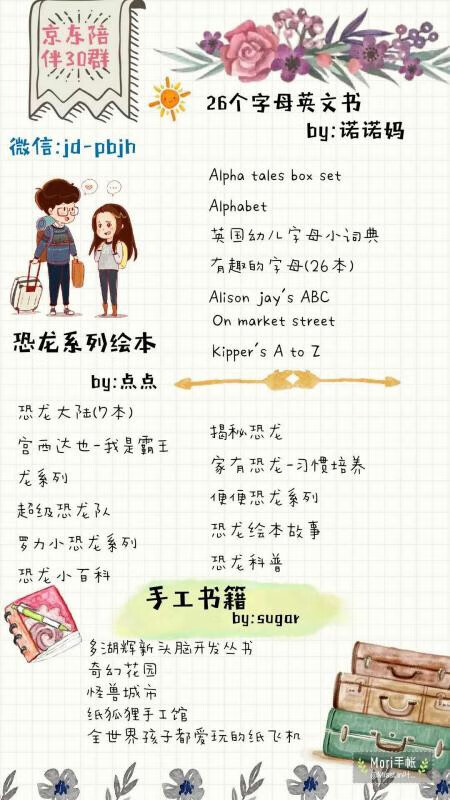 京东陪
伴30群
微信:jd-pbjh
26个字母英文书
by:诺诺妈
Alpha tales box set
Alphabet
英国幼儿字母小词典
有趣的字母(26本)
Alison jay's ABC
On market street
Kipper's A to Z
恐龙系列绘本
by:点点
恐龙大陆(7本)
宫西达也-我是霸王
龙系列
超级恐龙队
罗力小恐龙系列
恐龙小百科
揭秘恐龙
家有恐龙-习惯培养
便便恐龙系列
恐龙绘本故事
恐龙科普
手工书籍
by:sugar
多湖辉新头脑开发丛书
奇幻花园
怪兽城市
纸狐狸手工馆
全世界孩子都爱玩的纸飞机
Mori手帐